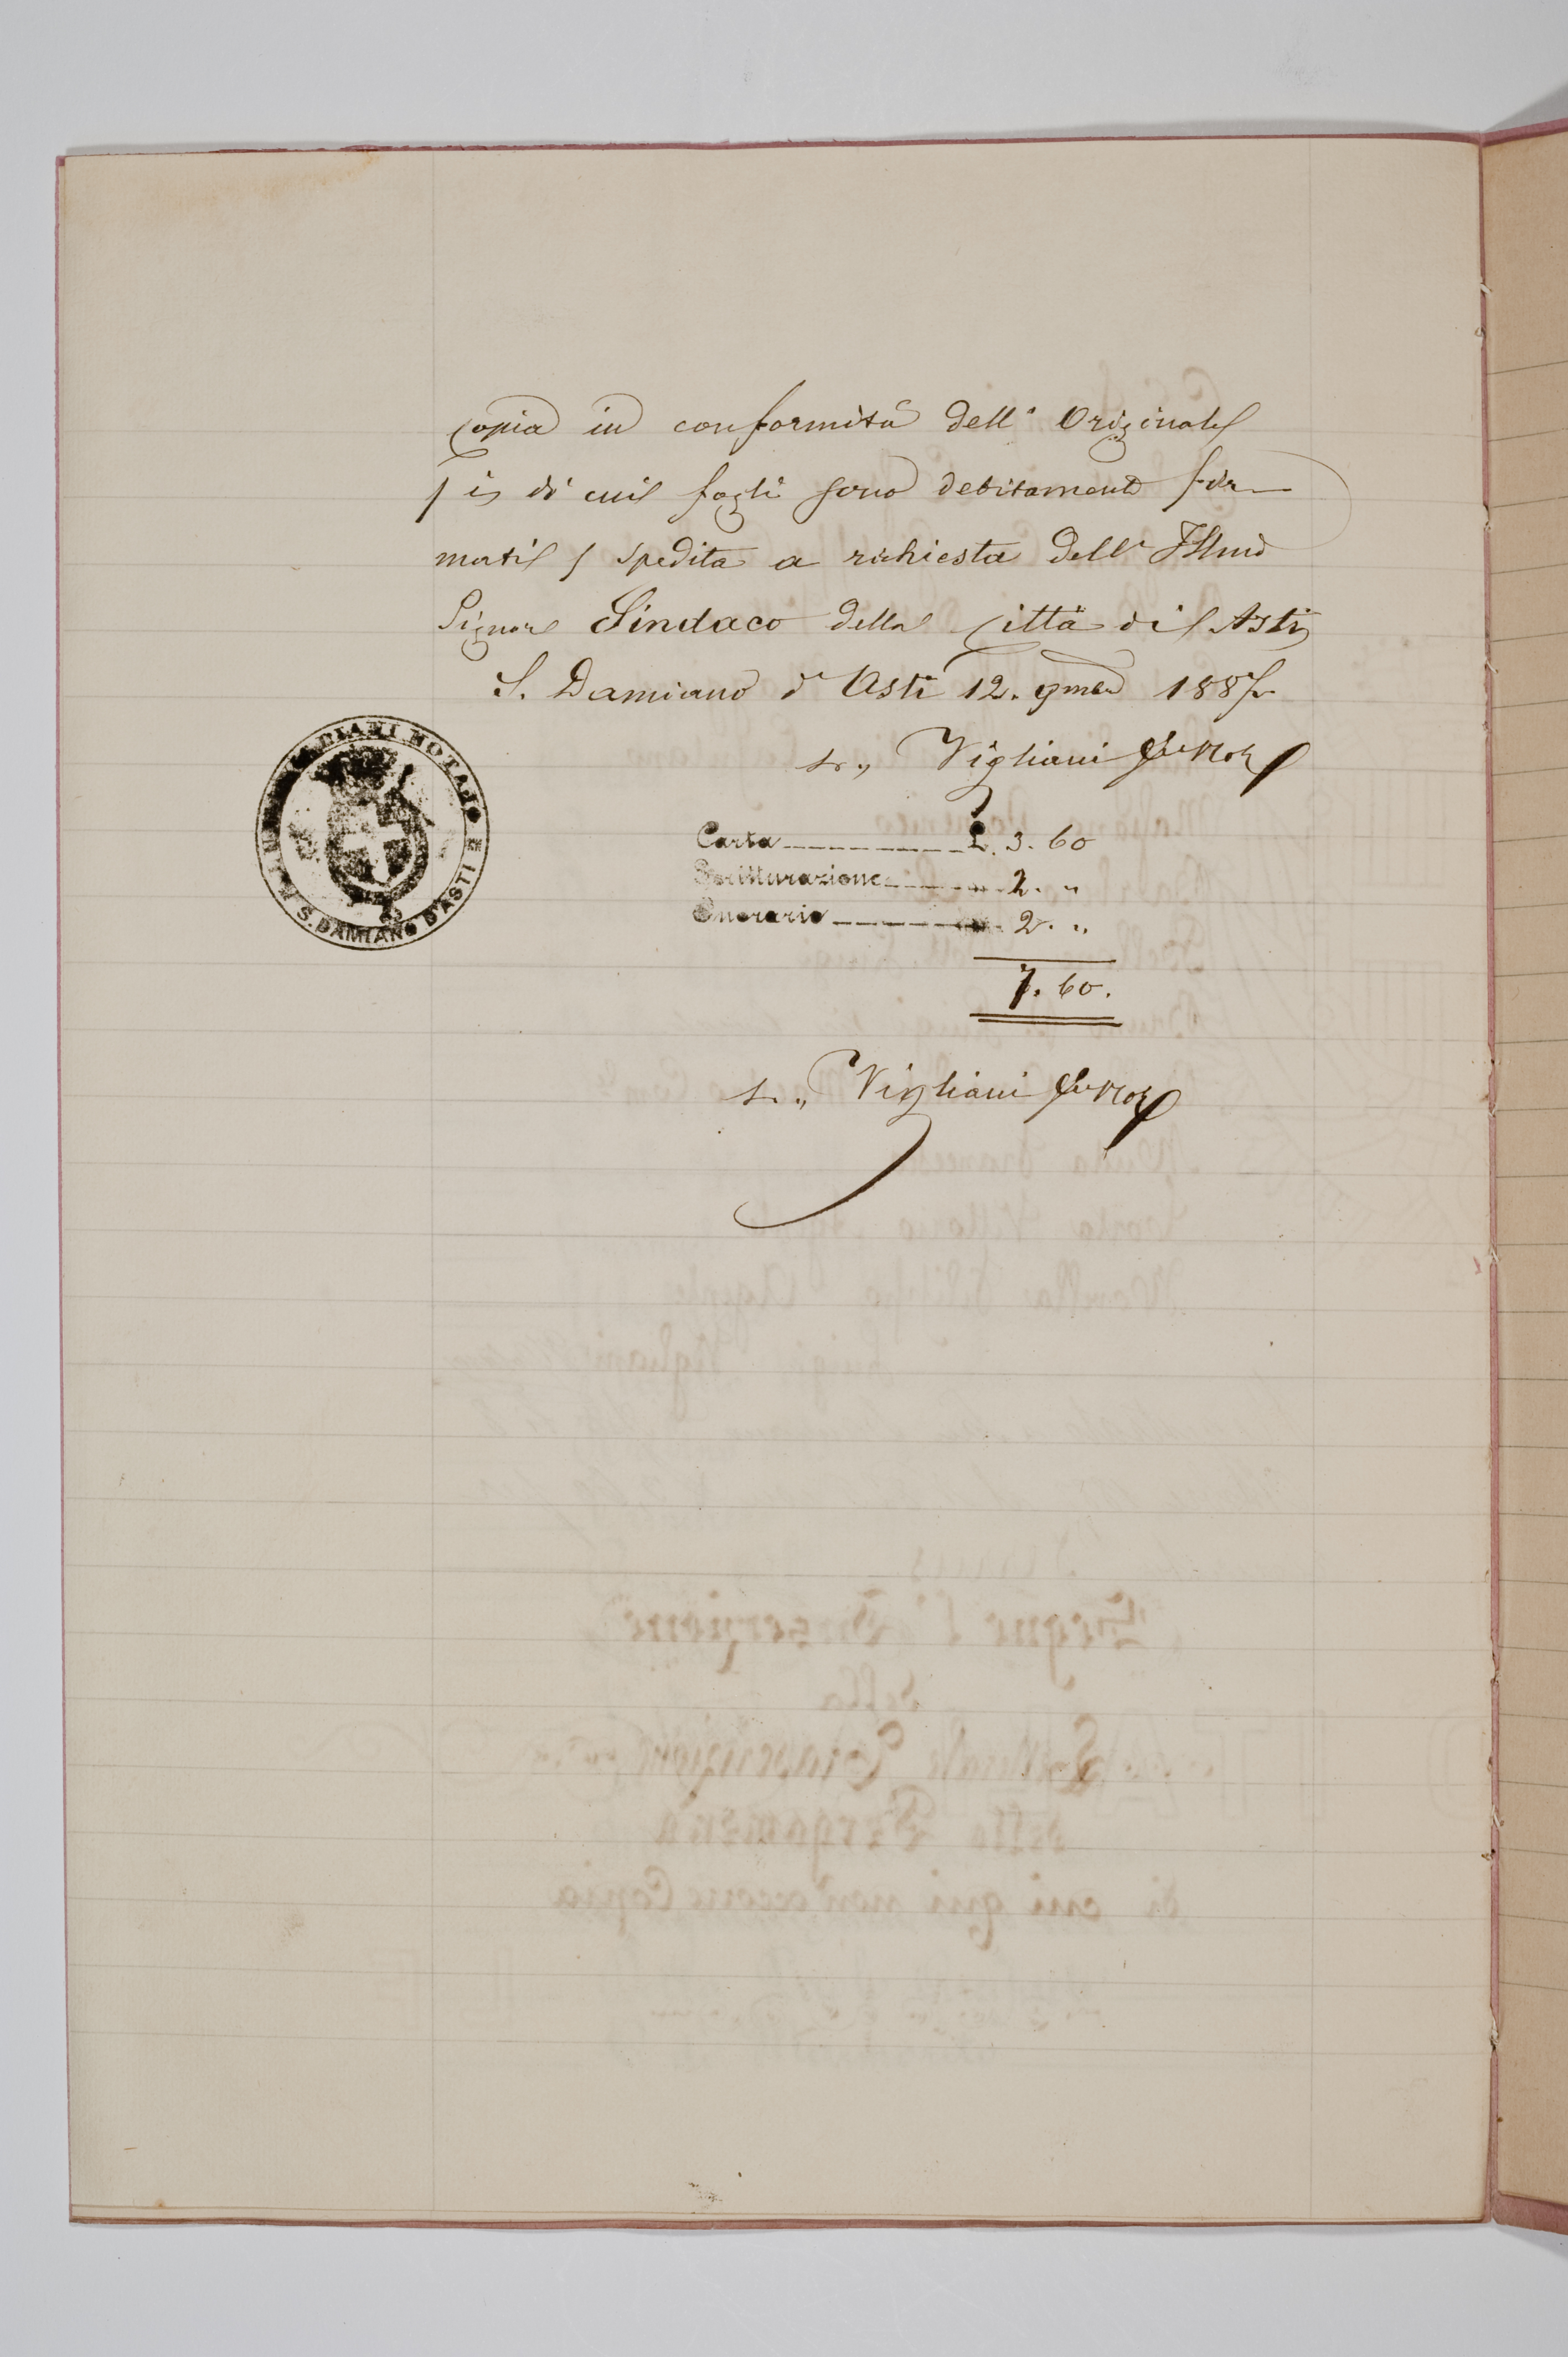 Copia in conformità dell'Originale
( i di cui fogli sono debitamente fir-
mati ) spedita a richiesta dell'Illmo
Signore Sindaco della Città di Asti
S. Damiano d'Asti 12. 9mbre 1887.
Vigliani
NOTAJO
S. DAMIANO D'ASTI
Carta L. 3. 60
Scritturazione " 2. "
Onorario " 2. "
7. 60.
Vigliani